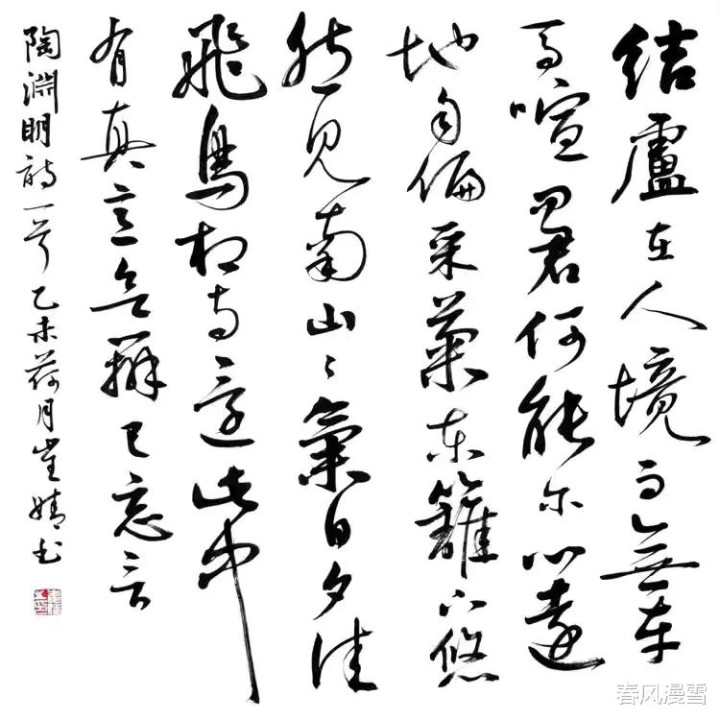 結廬在人境而無車
馬喧問君何能尔心遠
地自偏采菊東籬下悠
然見南山〻氣日夕佳
飛鳥相与還此中
有真意欲辯已忘言
陶淵明詩一首乙未荷月崔婧书
春风漫雪